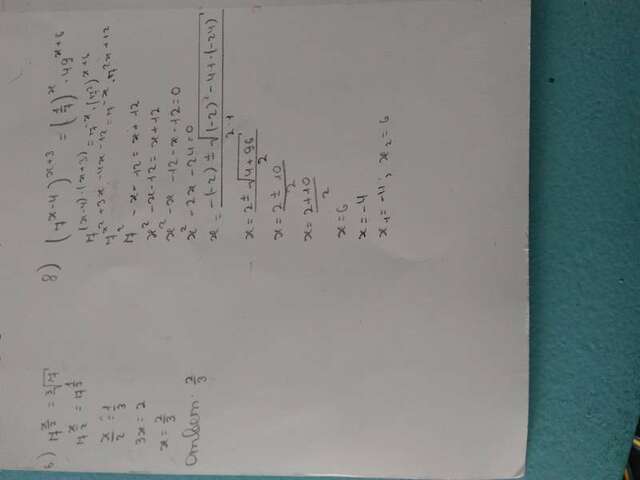 б) 7^(x/2) = ³√7
7^(x/2) = 7^(1/3)
x/2 = 1/3
3x = 2
x = 2/3
Ответ: 2/3
8) (7^(x-4))^(x+3) = (1/7)^x · 49^(x+6)
7^((x-4)·(x+3)) = 7^(-x) · (7²)^(x+6)
7^(x²+3x-4x-12) = 7^(-x) · 7^(2x+12)
7^(x²-x-12) = x+12
x²-x-12 = x+12
x²-x-12-x-12=0
x²-2x-24=0
x = (-(-2) ± √((-2)²-4·1·(-24)))/(2·1)
x = (2 ± √(4+96))/2
x = (2 ± 10)/2
x = (2+10)/2
x = 6
x = -4
x₁ = -4; x₂ = 6